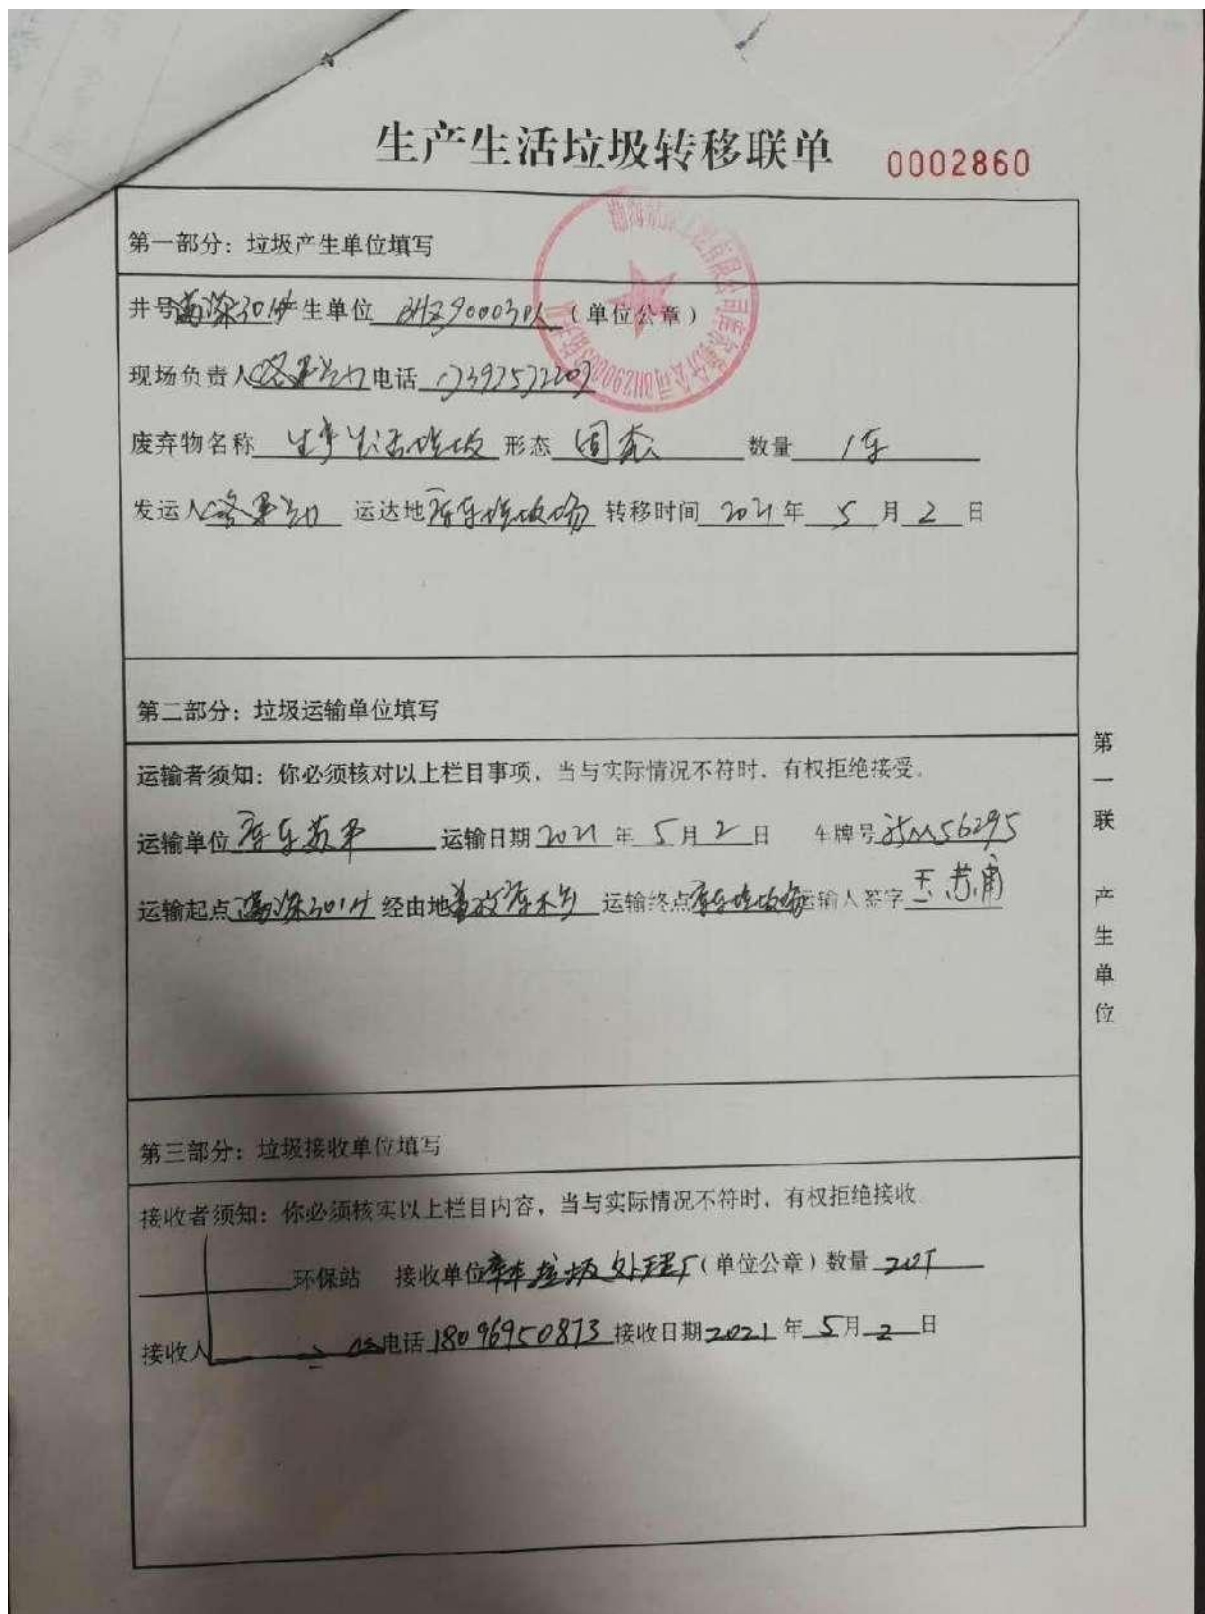 生产生活垃圾转移联单 0002860
第一部分：垃圾产生单位填写
井号满深301H产生单位 BHZ90003队（单位公章）
现场负责人 电话
废弃物名称 生产生活垃圾 形态 固态 数量 1车
发运人 运达地库车垃圾场 转移时间 2021年 5月2日
第二部分：垃圾运输单位填写
运输者须知：你必须核对以上栏目事项，当与实际情况不符时，有权拒绝接受。
运输单位 库车 运输日期2021年5月2日 车牌号 56295
运输起点满深301H 经由地 运输终点库车垃圾场运输人签字
第三部分：垃圾接收单位填写
接收者须知：你必须核实以上栏目内容，当与实际情况不符时，有权拒绝接收
环保站 接收单位库车垃圾处理厂（单位公章）数量 20T
接收人 电话18096950873接收日期2021年5月2日
第一联 产生单位